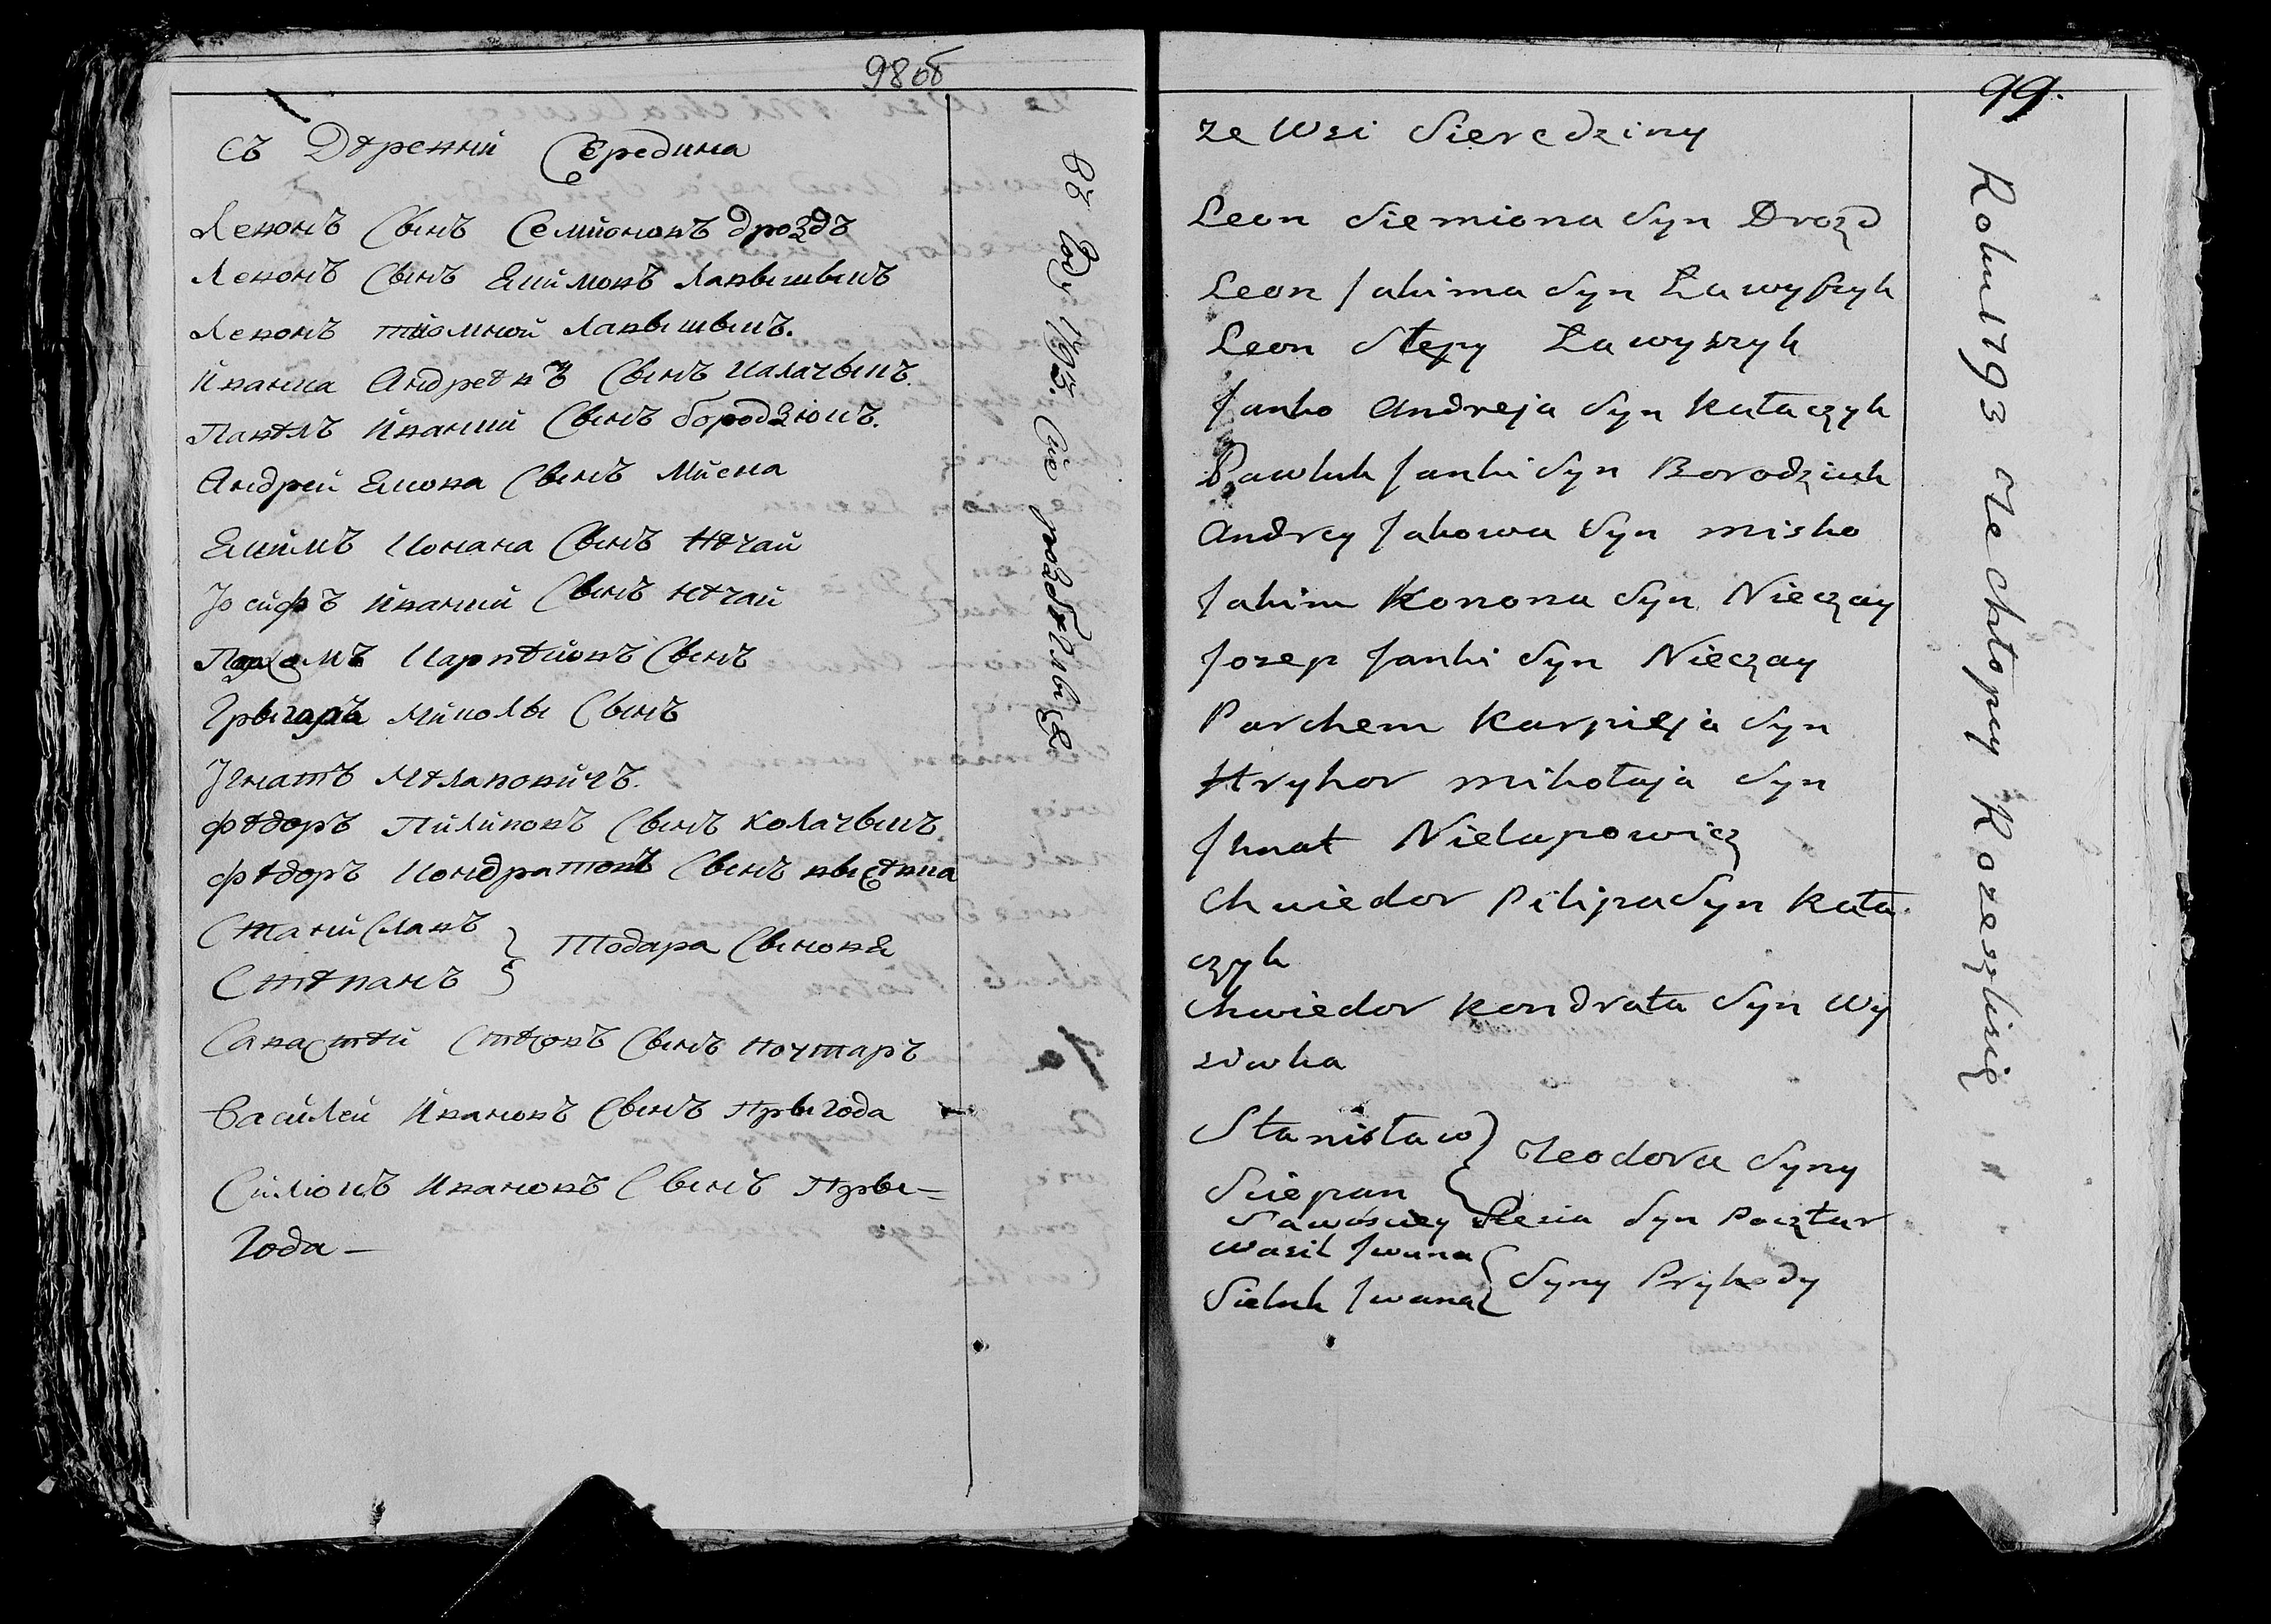 98об
съ Деревни Середина
Левонъ Сынъ Семионовъ Дроздъ
Левонъ Сынъ Якимовъ Лавышыкъ
Левонъ тиомный Лавышыкъ.
Иванка Андреевъ Сынъ Калачыкъ.
Павелъ Иванки Сынъ бородзюкъ.
Андрей Якова Сынъ Миска
Якимъ Конана Сынъ Нечай
Іосифъ Иванки Сынъ Нечай
Пархомъ Карпейовъ Сынъ
Грыгоръ Миколы Сынъ
Јгнатъ Мелаповичъ.
Федоръ Пилиповъ Сынъ Колачыкъ
Федоръ Кондратовъ Сынъ высевка
Станиславъ
Степанъ } Тодара Сыновя
Савастей Стесовъ Сынъ Почтаръ
Василей Ивановъ Сынъ Прыгода
Силюкъ Ивановъ Сынъ Пры=
года —
въ году 1793. Сие раздѣлылыся
99.
ze Wsi Sieredziny
Leon Siemiona Syn Drozd
Leon Jakima Syn Ławyszyk
Leon Slepy Ławyszyk
Janko Andreja Syn Kałaczyk
Pawluk Janki Syn Borodziuk
Andrey Jakowa Syn Misko
Jakim Konona Syn Nieczay
Jozep Janki Syn Nieczay
Parchem Karpieja Syn
Hryhor Mikołaja Syn
Jhnat Nielapowicz
Chwiedor Pilipa Syn Kała
czyk
Chwiedor Kondrata Syn Wy
siwka
Stanisław
Sciepan } Teodora Syny
Sawosciey Stesia Syn Pocztar
Wasil Jwana
Sieluk Jwana } Syny Pryhody
Roku 1793 Te Chłopny Rozeszlisię